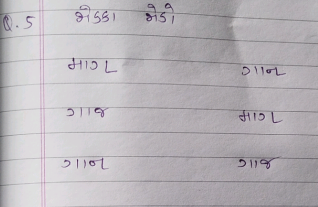 Q.5 જોડકા જોડો
માન ગાન
ગાજ માન
ગાન ગાજ